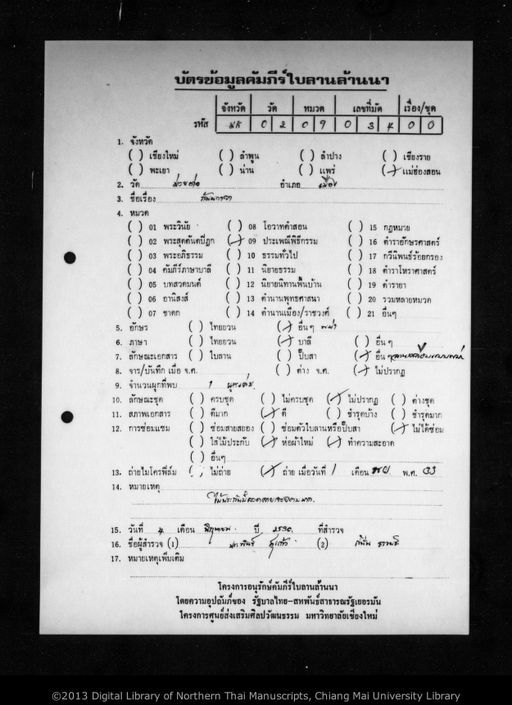 บัตรข้อมูลคัมภีร์ใบลานล้านนา
จังหวัด วัด หมวด เลขที่มัด เรื่อง/ชุด
รหัส 0 2 0 9 0 3 4 0 0
1. จังหวัด
( ) เชียงใหม่ ( ) ลำพูน ( ) ลำปาง ( ) เชียงราย
( ) พะเยา ( ) น่าน ( ) แพร่ (✓) แม่ฮ่องสอน
2. วัด อำเภอ เมือง
3. ชื่อเรื่อง
4. หมวด
( ) 01 พระวินัย ( ) 08 โอวาทคำสอน ( ) 15 กฎหมาย
( ) 02 พระสุตตันตปิฎก (✓) 09 ประเพณีพิธีกรรม ( ) 16 ตำราอักษรศาสตร์
( ) 03 พระอภิธรรม ( ) 10 ธรรมทั่วไป ( ) 17 กวีนิพนธ์ร้อยกรอง
( ) 04 คัมภีร์ภาษาบาลี ( ) 11 นิยายธรรม ( ) 18 ตำราโหราศาสตร์
( ) 05 บทสวดมนต์ ( ) 12 นิยายนิทานพื้นบ้าน ( ) 19 ตำรายา
( ) 06 อานิสงส์ ( ) 13 ตำนานพุทธศาสนา ( ) 20 รวมหลายหมวด
( ) 07 ชาดก ( ) 14 ตำนานเมือง/ราชวงศ์ ( ) 21 อื่นๆ
5. อักษร ( ) ไทยยวน (✓) อื่นๆ พม่า
6. ภาษา ( ) ไทยยวน (✓) บาลี ( ) อื่นๆ
7. ลักษณะเอกสาร ( ) ใบลาน ( ) ปั๊บสา (✓) อื่นๆ
8. จาร/บันทึก เมื่อ จ.ศ. ( ) ค่าง จ.ศ. (✓) ไม่ปรากฏ
9. จำนวนผูกที่พบ 1
10. ลักษณะชุด ( ) ครบชุด ( ) ไม่ครบชุด (✓) ไม่ปรากฏ ( ) ต่างชุด
11. สภาพเอกสาร ( ) ดีมาก (✓) ดี ( ) ชำรุดบ้าง ( ) ชำรุดมาก
12. การซ่อมแซม ( ) ซ่อมสายสยอง ( ) ซ่อมตัวใบลานหรือปั๊บสา (✓) ไม่ได้ซ่อม
( ) ใส่ไม้ประกับ (✓) ห่อผ้าใหม่ (✓) ทำความสะอาด
( ) อื่นๆ
13. ถ่ายไมโครฟิล์ม ( ) ไม่ถ่าย (✓) ถ่าย เมื่อวันที่ 1 เดือน พย. พ.ศ. 33
14. หมายเหตุ
15. วันที่ 4 เดือน ปี 2530 ที่สำรวจ
16. ชื่อผู้สำรวจ (1) (2)
17. หมายเหตุเพิ่มเติม
โครงการอนุรักษ์คัมภีร์ใบลานล้านนา
โดยความอุปถัมภ์ของ รัฐบาลไทย-สหพันธ์สาธารณรัฐเยอรมัน
โครงการศูนย์ส่งเสริมศิลปวัฒนธรรม มหาวิทยาลัยเชียงใหม่
©2013 Digital Library of Northern Thai Manuscripts, Chiang Mai University Library